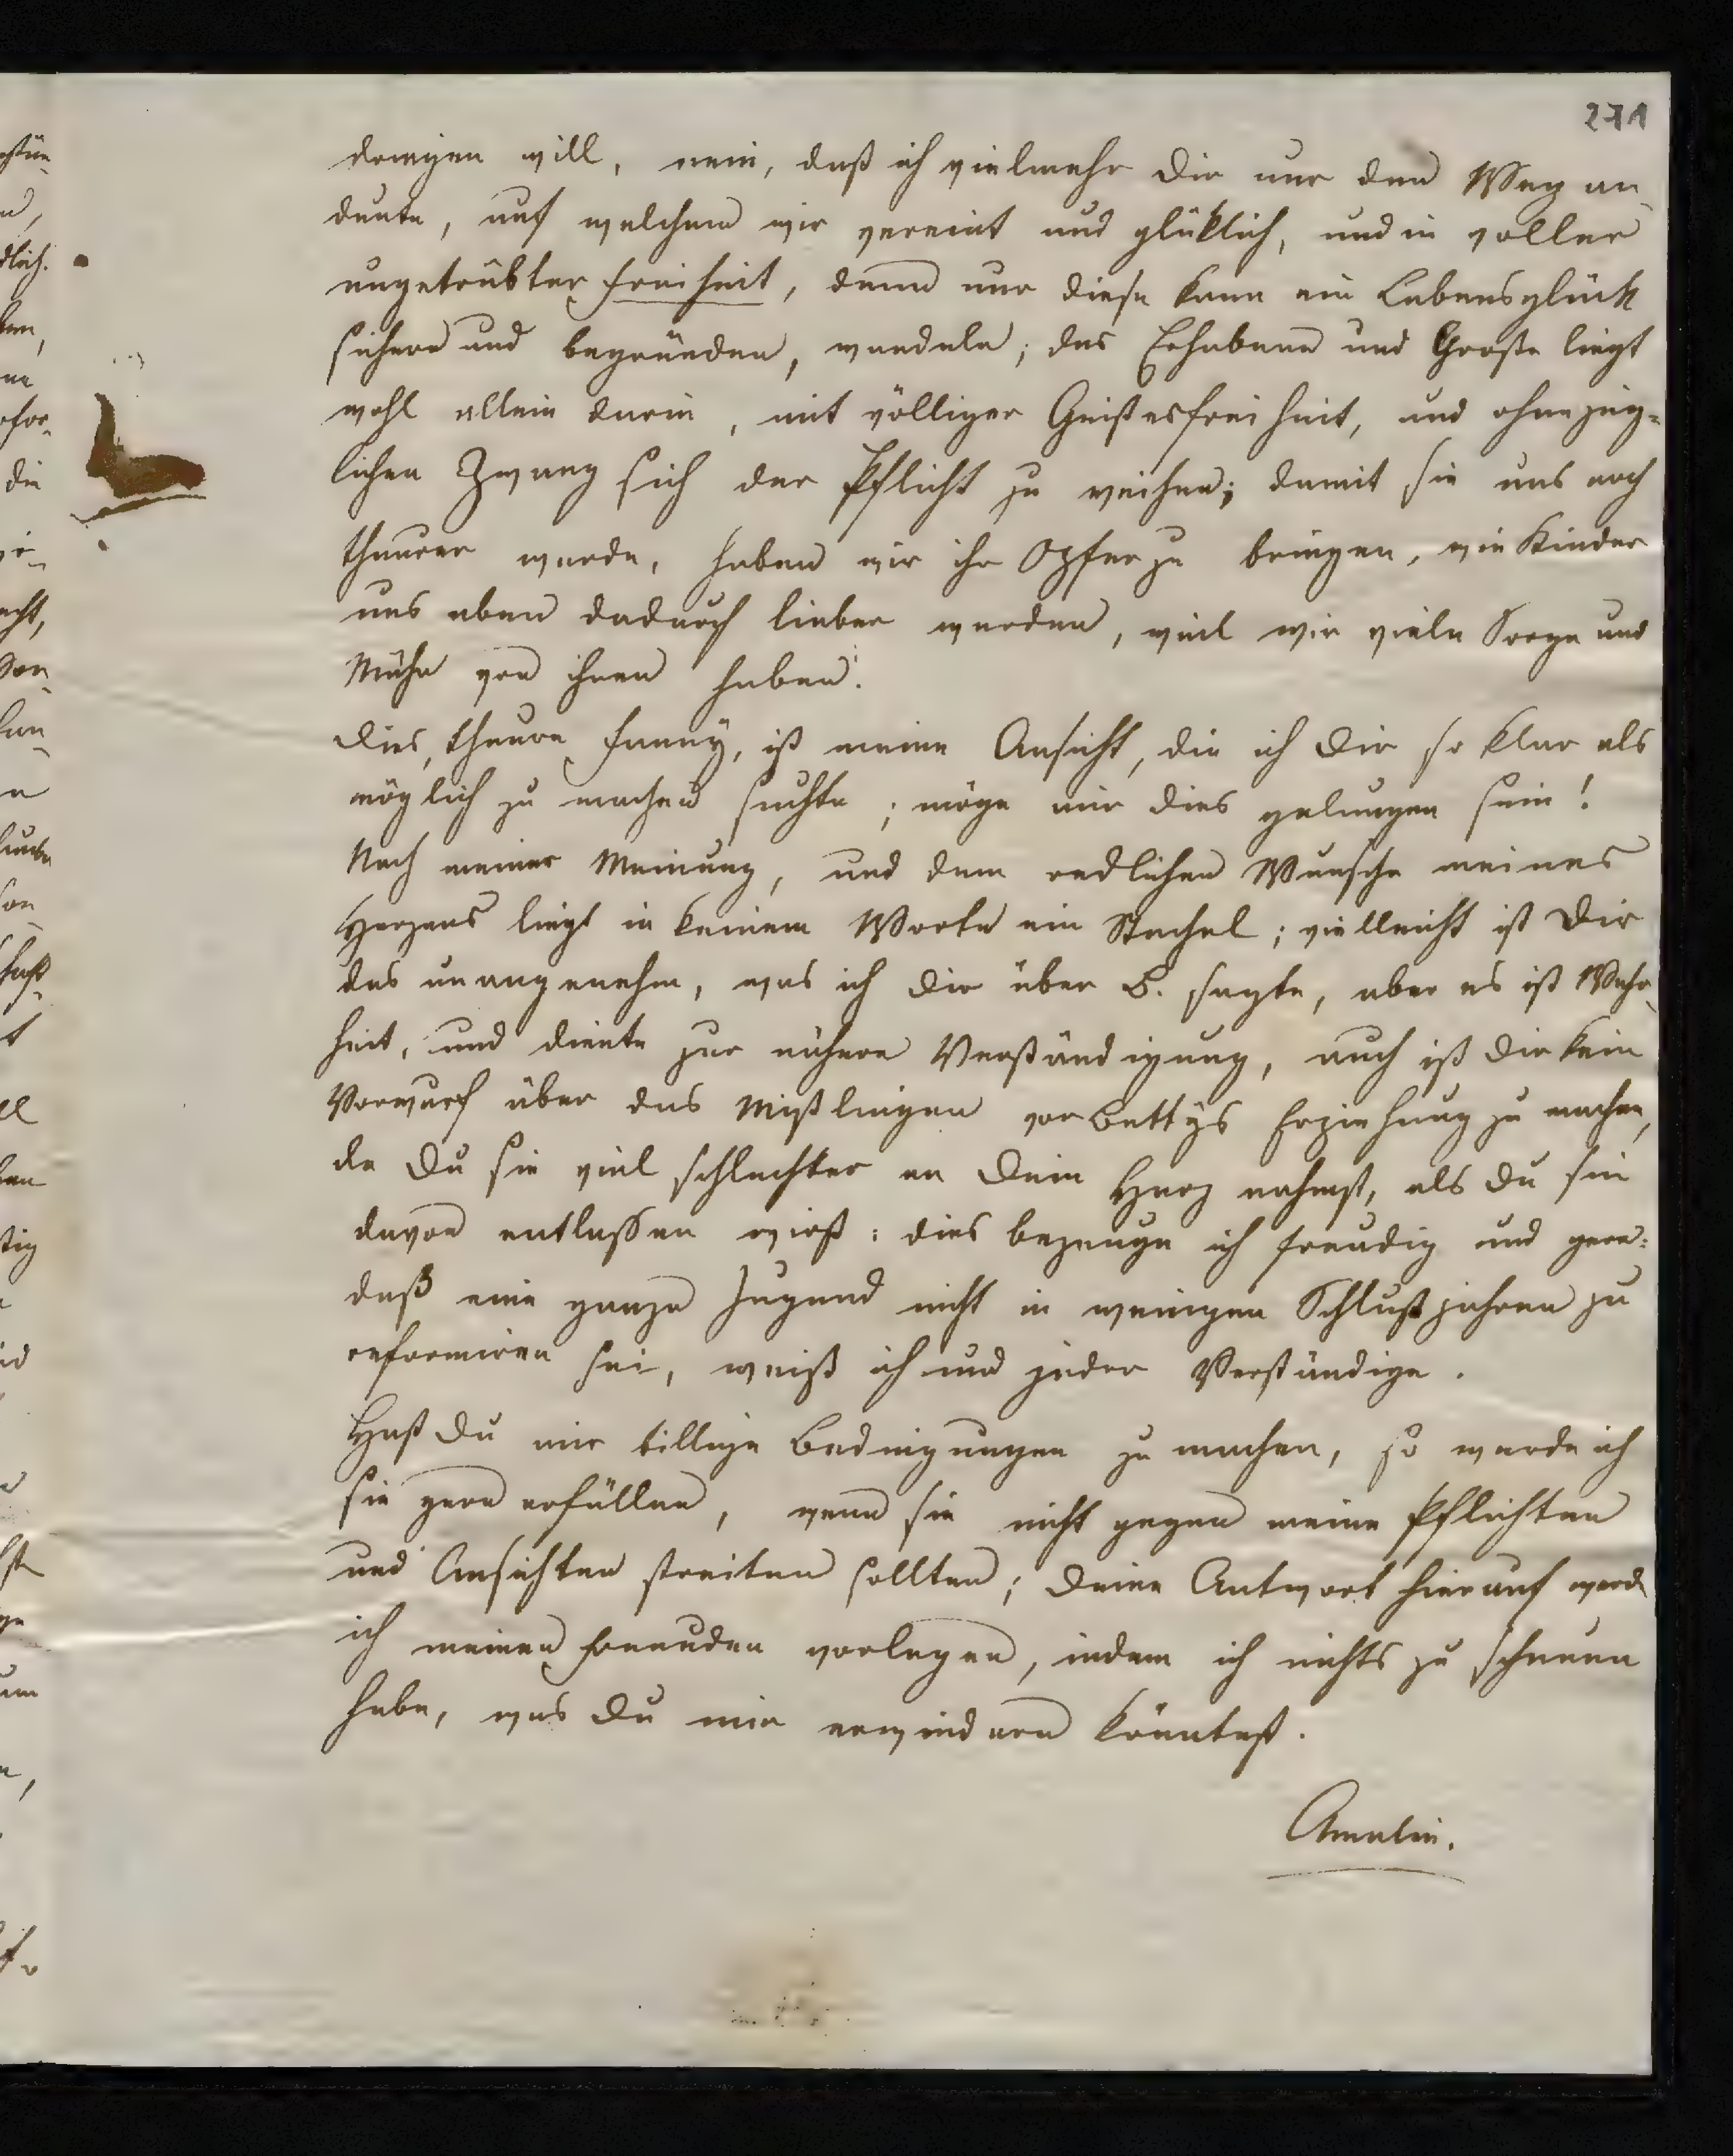 271
drengen will, nein, daß ich vielmehr Dir nur den Weg an-
deute, auf welchem wir vereint und glüklich, und in voller
ungetrübter Freiheit, denn nur diese kann ein Lebensglück
sichern und begründen, wandeln; das Erhabene und Große liegt
wohl allein darin, mit völliger Geistesfreiheit, und ohne jeg-
lichen Zwang sich der Pflicht zu weihen; damit sie uns noch
theurer werde, haben wir ihr Opfer zu bringen, wie Kinder
uns eben dadurch lieber werden, weil wir viele Sorge und
Mühe von ihnen haben.
Dies, theure Fanny, ist meine Ansicht, die ich Dir so klar als
möglich zu machen suchte; möge mir dies gelungen sein!
Nach meiner Meinung, und dem redlichen Wunsche meines
Herzens liegt in keinem Worte ein Stachel; vielleicht ist Dir
das unangenehm, was ich Dir über B. sagte, aber es ist Wahr-
heit, und diente zur nähern Verständigung, auch ist Dir kein
Vorwurf über das Mißlingen von Bettys Erziehung zu machen,
da Du sie viel schlechter an Dein Herz nahmst, als Du sie
davon entlassen wirst: dies bezeuge ich freudig und gern:
daß eine ganze Jugend nicht in wenigen Schlußjahren zu
reformiren sei, weiß ich und jeder Verständige.
Hast Du mir billige Bedingungen zu machen, so werde ich
sie gern erfüllen, wenn sie nicht gegen meine Pflichten
und Ansichten streiten sollten; Deine Antwort hierauf werde
ich meinen Freunden vorlegen, indem ich nichts zu scheuen
habe, was Du mir erwiedern könntest.
Amalie.